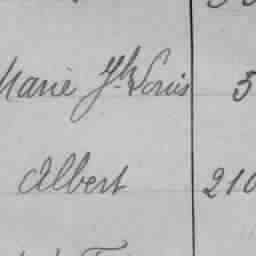 Marie Jh Louis 5
Albert 210